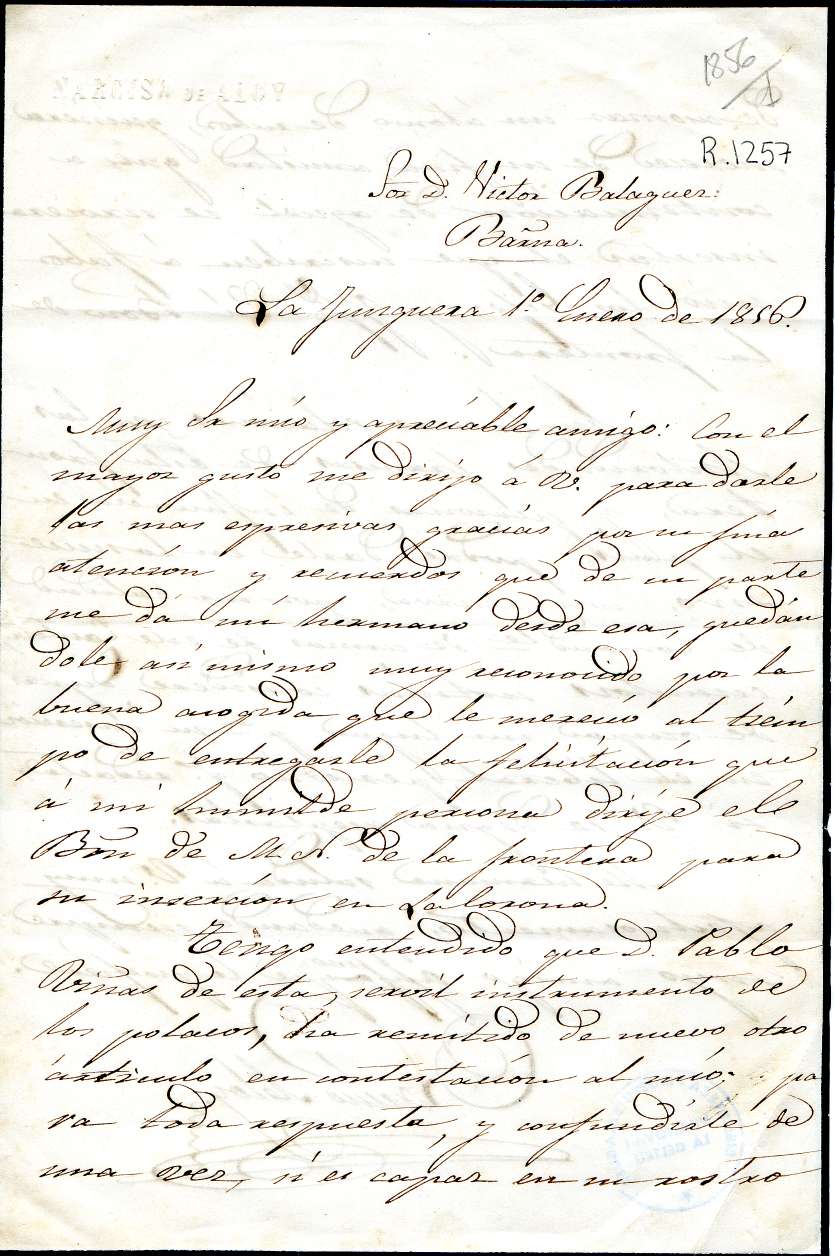 1856
/1
R.1257
Sor D. Victor Balaguer:
Barña.
La Junquera 1.º Enero de 1856.
Muy Sr mío y apreciable amigo: Con el
mayor gusto me dirijo á V. para darle
las mas espresivas gracias por su fina
atención y recuerdos que de su parte
me dá mi hermano desde esa, quedán
dole asi mismo muy reconocido por la
buena acogida que le mereció al tiém
po de entregarle la felicitación que
á mi humilde persona dirije el
Bon de M. N. de la frontera para
su inserción en La Corona.
Tengo entendido que D. Pablo
Viñas de esta, servil instrumento de
los polacos, ha remitido de nuevo otro
árticulo en contestación al mío; pa
ra toda respuesta, y confundirle de
una vez, si es capaz en su rostro